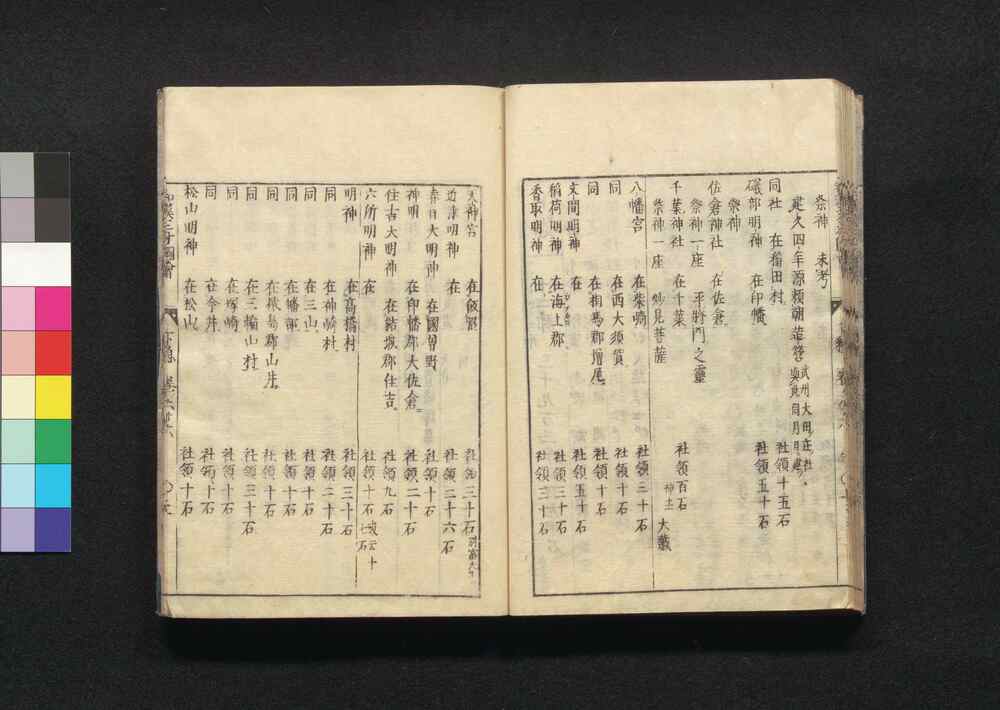 祭神 未考
建久四年源頼朝造営 武州大田庄社 與此同月日也
同社 在稲田村 社領十五石
磯部明神 在印幡 社領五十石
祭神
佐倉神社 在佐倉
祭神一座 平将門之霊
千葉神社 在千葉 社領百石
祭神一座 妙見菩薩 神主 大戴
八幡宮 在柴崎 社領三十石
同 在西大須賀 社領十石
同 在相馬郡増尾 社領十石
文間明神 在 社領五十石
稲荷明神 在海上郡 社領三十石
香取明神 在 社領三十石
大神宮 在飯沼 社領三十石
近津明神 在 社領二十六石
春日大明神 在國曽野 社領十石
神明 在印幡郡大佐倉 社領二十石
住吉大明神 在結城郡住吉 社領九石
六所明神 在 社領十石 或云十七石
明神 在高橋村 社領三十石
同 在神崎村 社領二十石
同 在三山 社領十石
同 在幡部 社領十石
同 在猨島郡山井 社領十石
同 在三輪山村 社領三十石
同 在塚崎 社領十石
同 在今井 社領十石
松山明神 在松山 社領十石
和漢三才圖會